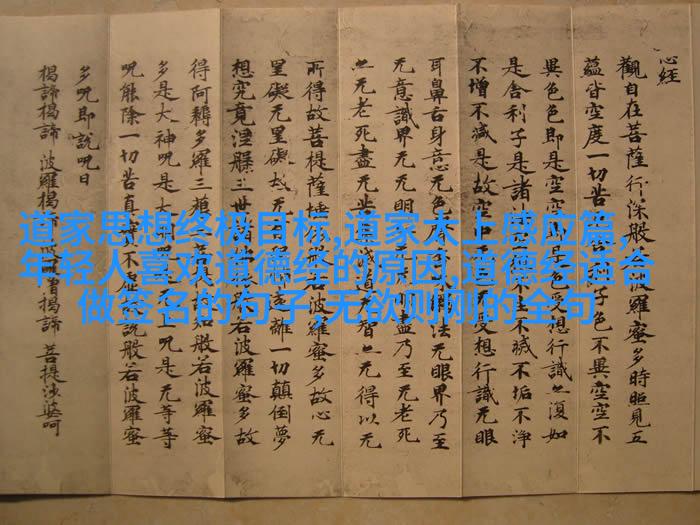 道家思想终极目标,道家太上感应篇,
年轻人喜欢道德经的原因,道德经适合
做签名的句子,无欲则刚的全句
心经
觀自在菩薩行深般波羅蜜多時照見五
蘊皆空度一切苦子色不異空空不
異色色即是空空色受想行識亦復如
是舍利子是諸不生不滅不垢不淨
不增不減是故空中无受想行識无眼
耳鼻舌身意无色法无眼界乃至
无意識界无无明盡乃至无老死
亦无老死盡无苦滅道无智亦无得以无
所得故菩提薩埵若波羅蜜多故心无
罣礙无罣礙故无遠離一切顛倒夢
想究竟涅槃三世若波羅蜜多故
得阿耨多羅三藐故知般若波羅蜜
多是大神咒是大上咒是无等等
咒能除一切苦真實不虛說般若波羅蜜
多咒即說咒曰
揭諦揭諦 波羅揭僧揭諦 菩提娑婆呵